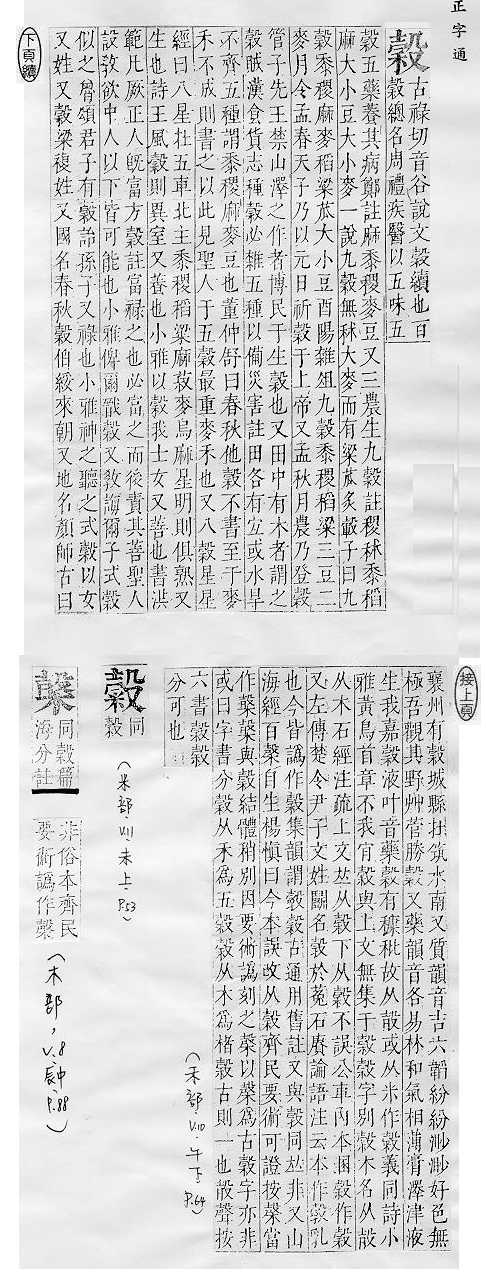 正字通
穀
古祿切音谷說文穀續也百
穀總名周禮疾醫以五味五
穀五藥養其病鄭註麻黍稷麥豆又三農生九穀註稷秫黍稻
麻大小豆大小麥一說九穀無秫大麥而有粱苽炙轂子曰九
穀黍稷麻麥稻粱苽大小豆酉陽雜俎九穀黍稷稻粱三豆二
麥月令孟春天子乃以元日祈穀于上帝又孟秋月農乃登穀
管子先王禁山澤之作者博民于生穀也又田中有木者謂之
穀賊漢食貨志種穀必雜五種以備災害註田各有宜或水旱
不齊五種謂黍稷麻麥豆也董仲舒曰春秋他穀不書至于麥
禾不成則書之以此見聖人于五穀最重麥禾也又八穀星星
經曰八星在五車北主黍稷稻粱麻菽麥烏麻星明則俱熟又
生也詩王風穀則異室又養也小雅以穀我士女又善也書洪
範凡厥正人旣富方穀註富祿之也必富之而後責其善聖人
設敎欲中人以下皆可能也小雅俾爾戩穀又敎誨爾子式穀
似之魯頌君子有穀詒孫子又祿也小雅神之聽之式穀以女
又姓又穀梁複姓又國名春秋穀伯綏來朝又地名顏師古曰
下頁續
接上頁
襄州有穀城縣在筑水南又質韻音吉六韜紛紛渺渺好色無
極吾觀其野艸菅勝穀又藥韻音各易林和氣相薄膏澤津液
生我嘉穀液叶音藥穀有穅秕故从㱿或从米作糓義同詩小
雅黃鳥首章不我肯穀與上文無集于榖榖字別榖木名从㱿
从木石經注疏上文𠀤从榖下从穀不誤公車內本困穀作榖
又左傳楚令尹子文姓鬭名穀於菟石賡論語注云本作㝅乳
也今皆譌作穀集韻謂㝅穀古通用舊註又與穀同𠀤非又山
海經百蔾自生楊慎曰今本誤改从穀齊民要術可證按蔾當
作 與穀結體稍別因要術譌刻之 以 為古穀字亦非
或曰字書分穀从禾為五穀榖从木為楮榖古則一也㱿聲按
六書榖穀
分可也
糓
同
穀
(米部,VII 未上, P.53)
(禾部,V.10, 午下, P.64)
同穀篇
海分註
非俗本齊民
要術譌作
(木部,V.8 辰中 P.88)